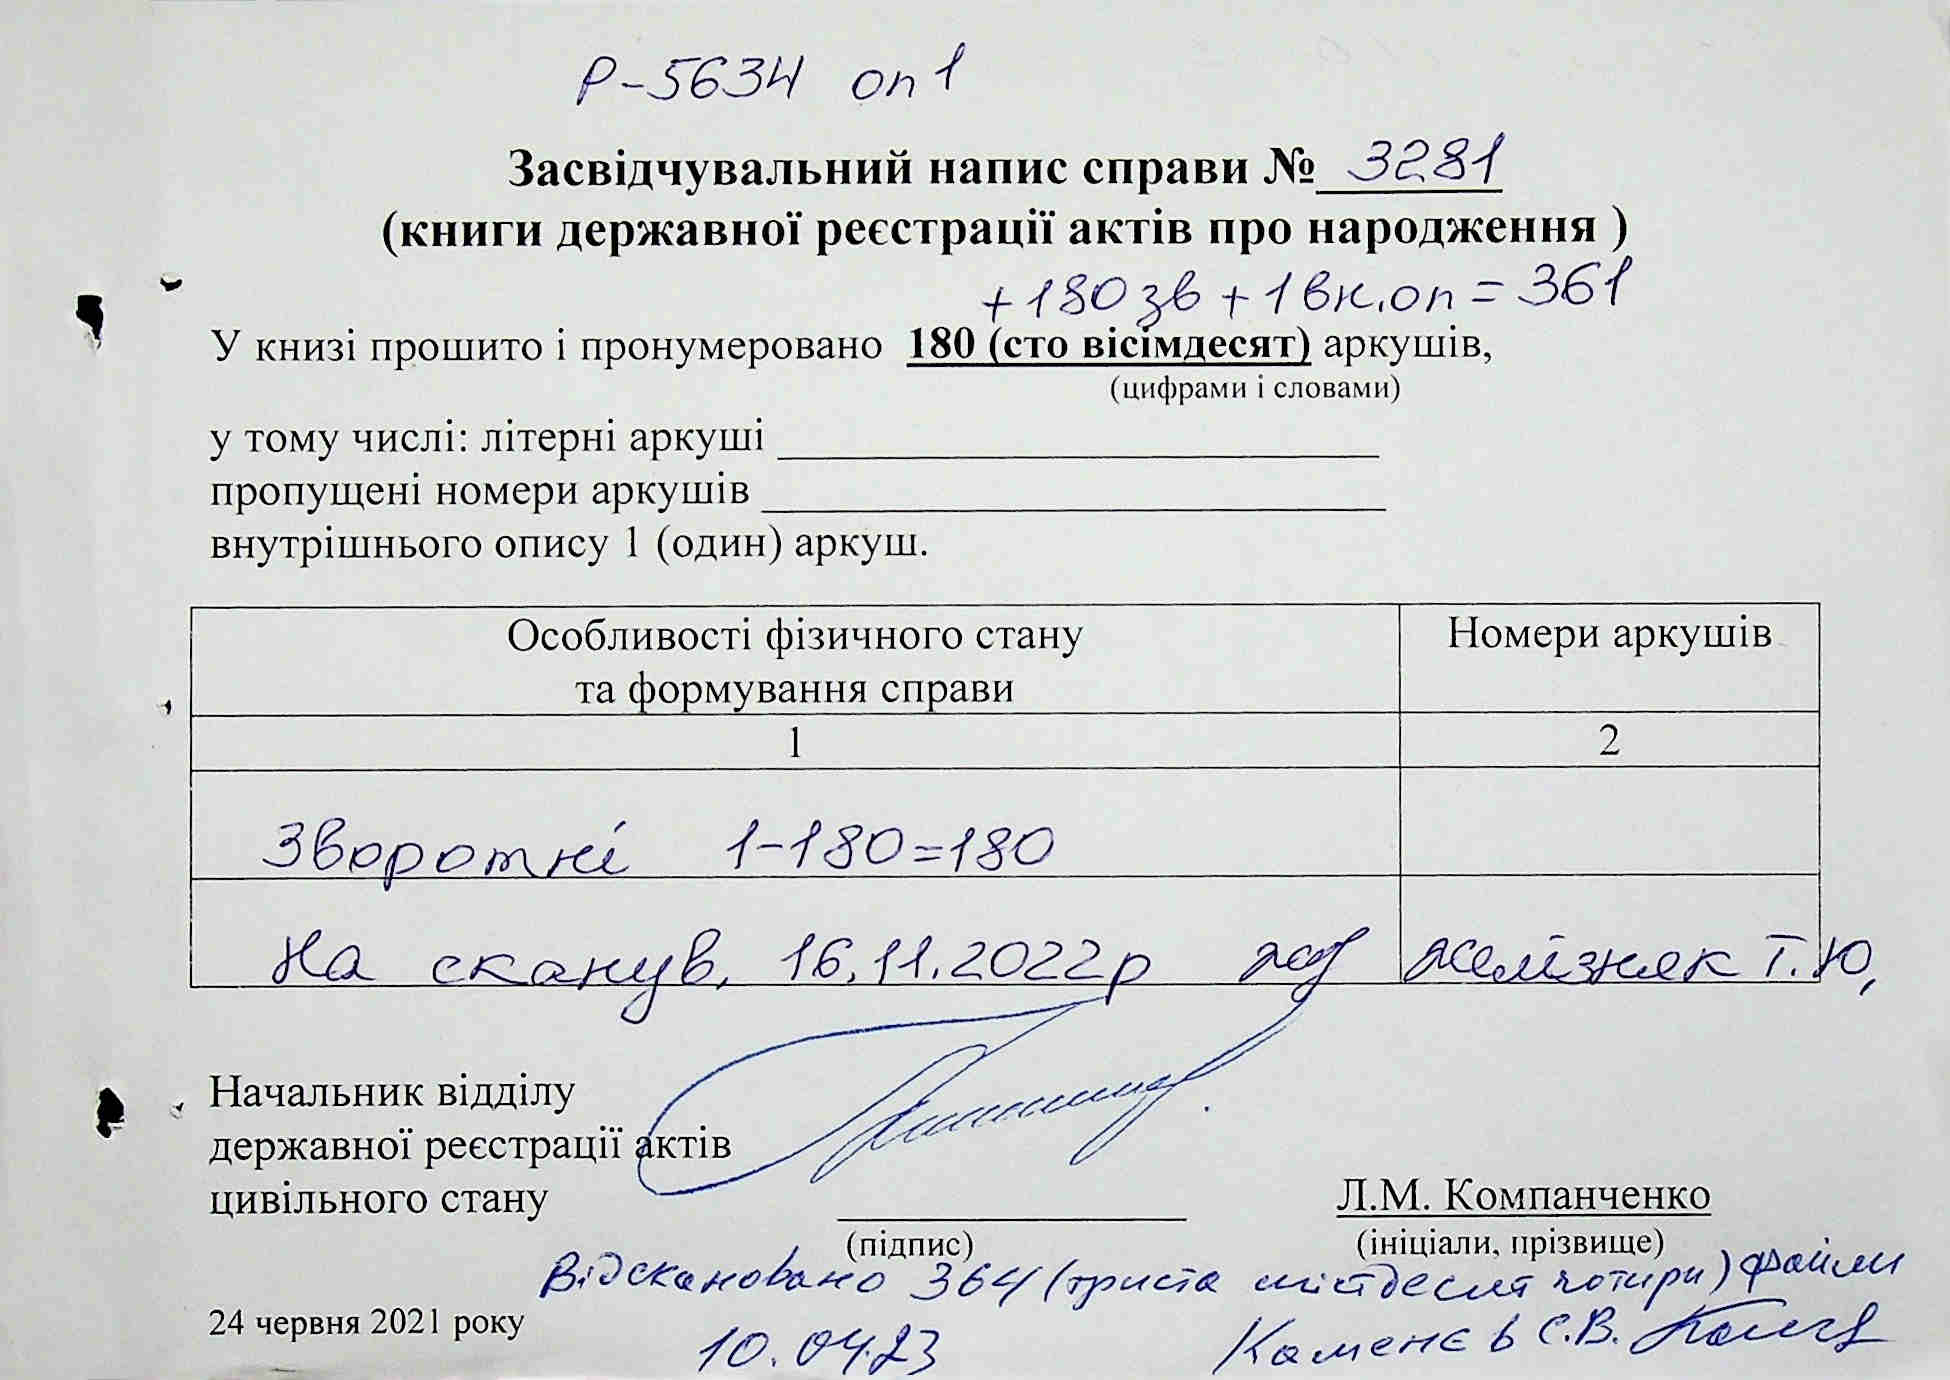 Р-5634 оп 1
Засвідчувальний напис справи № 3281
(книги державної реєстрації актів про народження )
+ 180 зв + 1 вн.оп = 361
У книзі прошито і пронумеровано 180 (сто вісімдесят) аркушів,
(цифрами і словами)
у тому числі: літерні аркуші
пропущені номери аркушів
внутрішнього опису 1 (один) аркуш.
Особливості фізичного стану Номери аркушів
та формування справи
1 2
Зворотні 1-180=180
На сканув. 16.11.2022р Желізняк Т.Ю,
Начальник відділу
державної реєстрації актів
цивільного стану Л.М. Компанченко
(підпис) (ініціали, прізвище)
Відскановано 364 (триста шістдесят чотири) файли
24 червня 2021 року
10.04.23 Каменєв С.В.